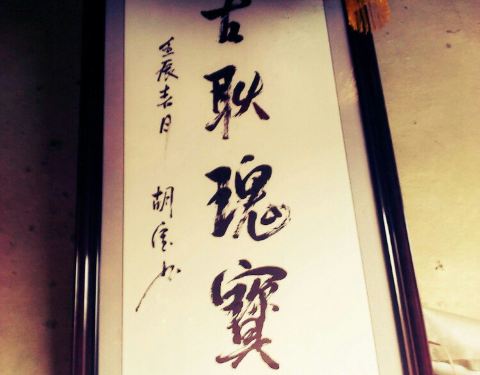 古耿瑰寶
壬辰吉月
胡